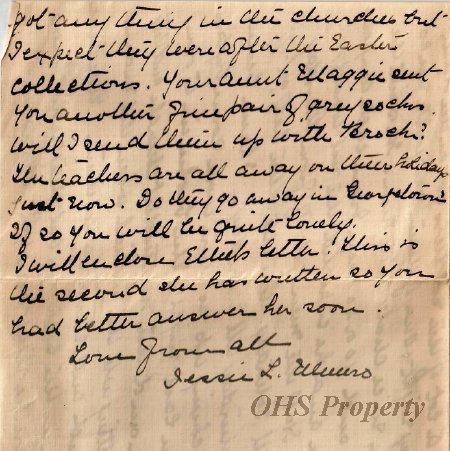 got any thing in the churches but
I expect they were after the Easter
collections. Your aunt Maggie sent
you another fine pair of grey socks.
Will I send them up with Brock?
The teachers are all away on their holidays
just now. Do they go away in Georgetown?
If so you will be quite lonely.
I will enclose letter. This is
the second she has written so you
had better answer her soon.
Love from all
Jessie L. Munro
OHS Property